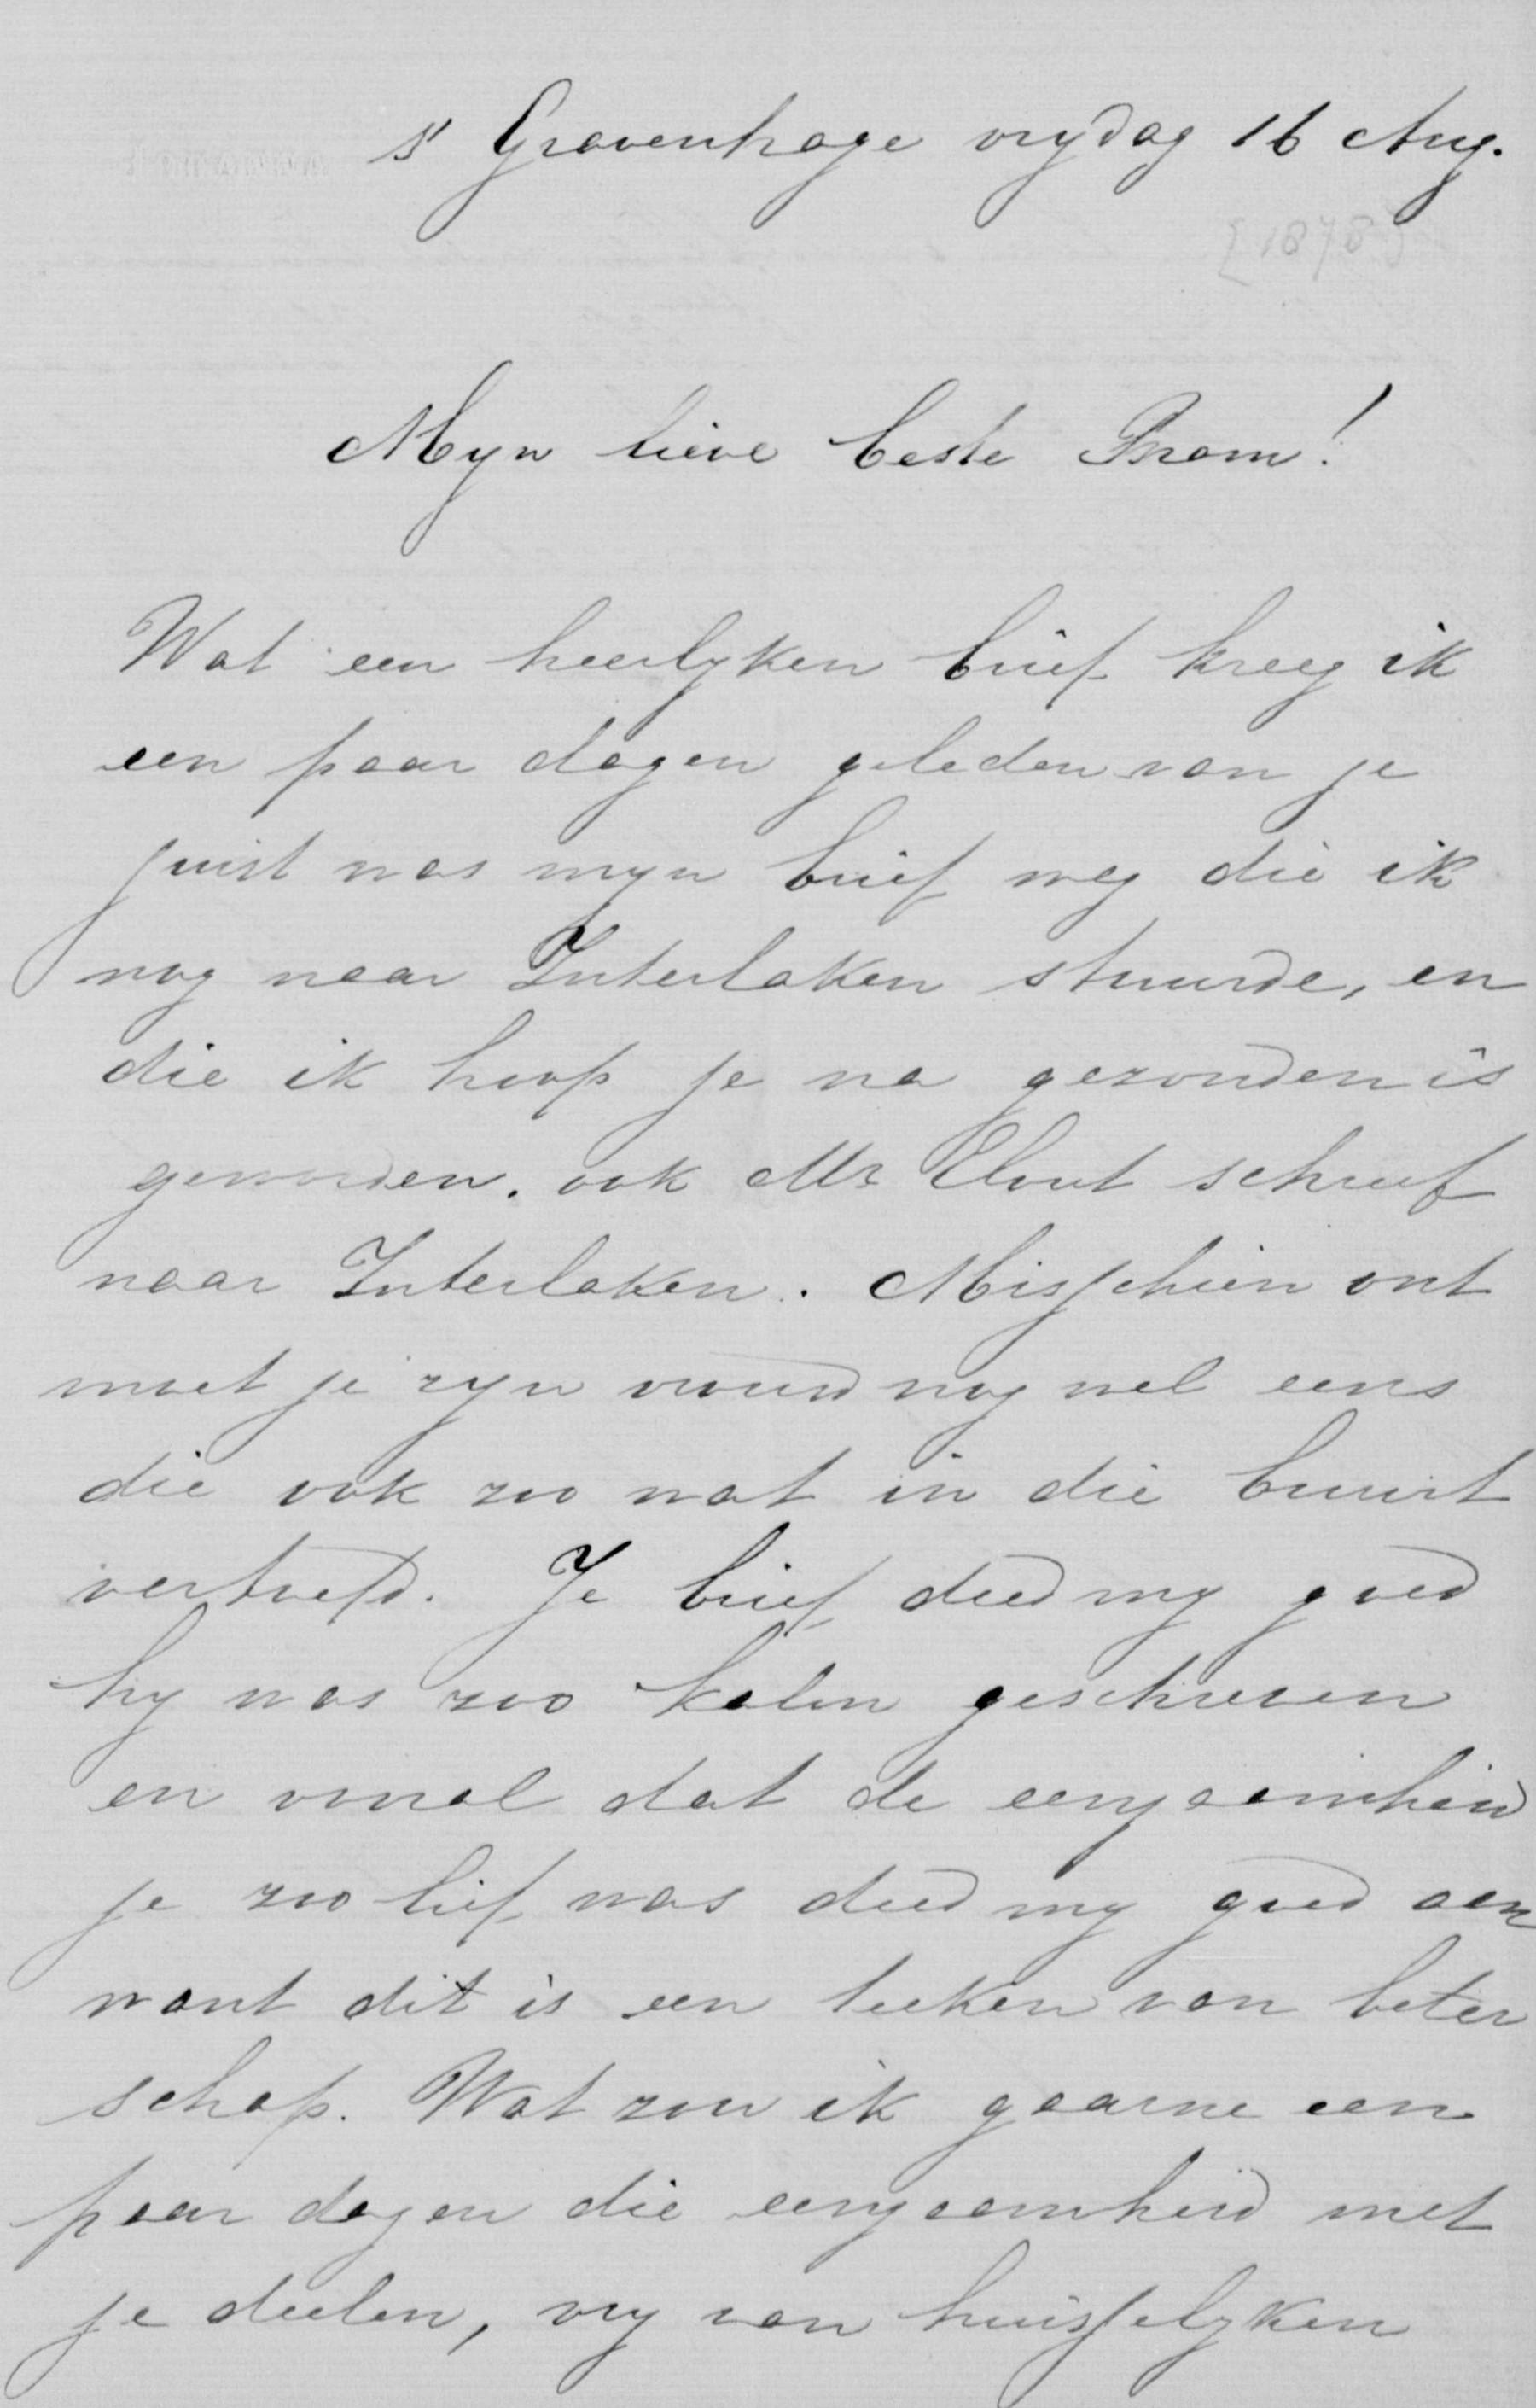 s' Gravenhage vrydag 16 Aug.
[1878]
Myn lieve beste Bram!
Wat een heerlyken brief kreeg ik
een paar dagen geleden van je
juist was myn brief weg die ik
nog naar Interlaken stuurde, en
die ik hoop je na gezonden is
geworden. ook Mr Elout schreef
naar Interlaken. Misschien ont
moet je zyn vriend nog wel eens
die ook zoo wat in die buurt
vertoefd. Je brief deed my goed
hy was zoo kalm geschreven
en vooral dat de eenzaamheid
je zoo lief was deed my goed aan
want dit is een teeken van beter
schap. Wat zou ik gaarne een
paar dagen die eenzaamheid met
je deelen, vry van huisselyken